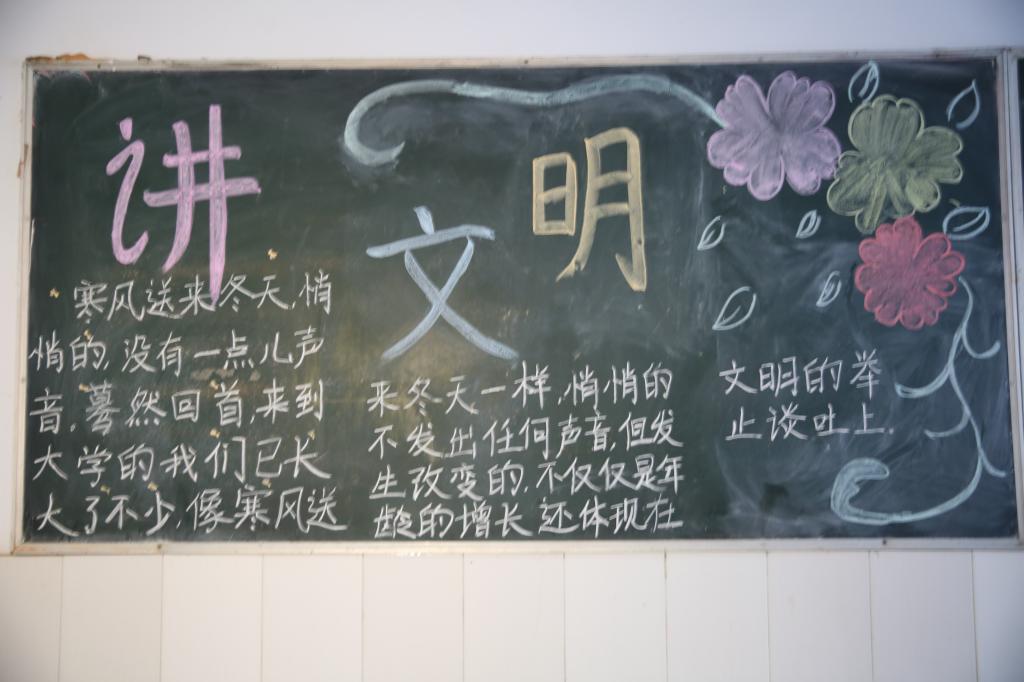 讲文明
寒风送来冬天,悄
悄的,没有一点儿声
音,蓦然回首,来到
大学的我们已长
大了不少,像寒风送
来冬天一样,悄悄的
不发出任何声音,但发
生改变的,不仅仅是年
龄的增长还体现在
文明的举
止谈吐上.